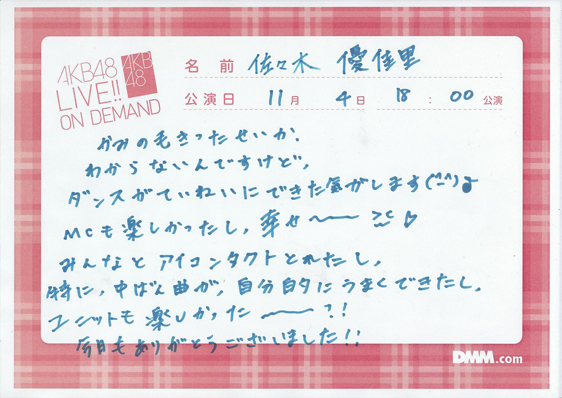 AKB48
LIVE!!
ON DEMAND
AKB
48
名前 佐々木 優佳里
公演日 11月 4日 18:00 公演
かみの毛きったせいか、
わからないんですけど、
ダンスがていねいにできた気がします(^^)♪
MCも楽しかったし、幸せ〜〜 >c ♡
みんなとアイコンタクトとれたし、
特に、中ばん曲が、自分的にうまくできたし、
ユニットも楽しかった〜〜?!
今日もありがとうございました!!
DMM.com